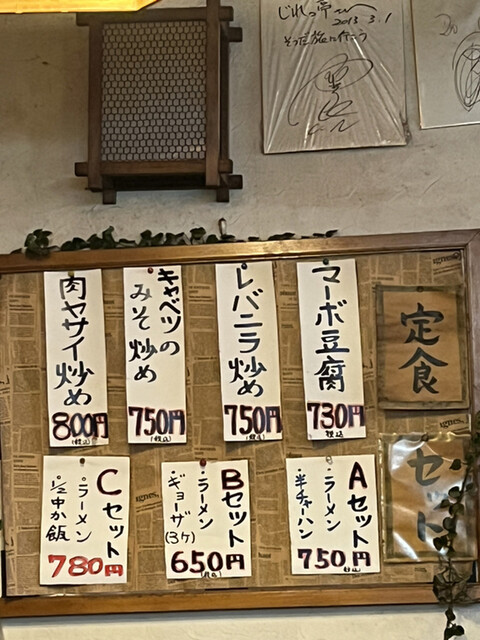 じれっ亭さんへ
2013.3.1
そうだ旅に行こう
定食
マーボ豆腐
730円
税込
レバニラ炒め
750円
(税込)
キャベツの
みそ炒め
750円
(税込)
肉ヤサイ炒め
800円
(税込)
セット
Aセット
・ラーメン
・半チャーハン
750円
税込
Bセット
・ラーメン
・ギョーザ
(3ケ)
650円
(税込)
Cセット
・ラーメン
780円